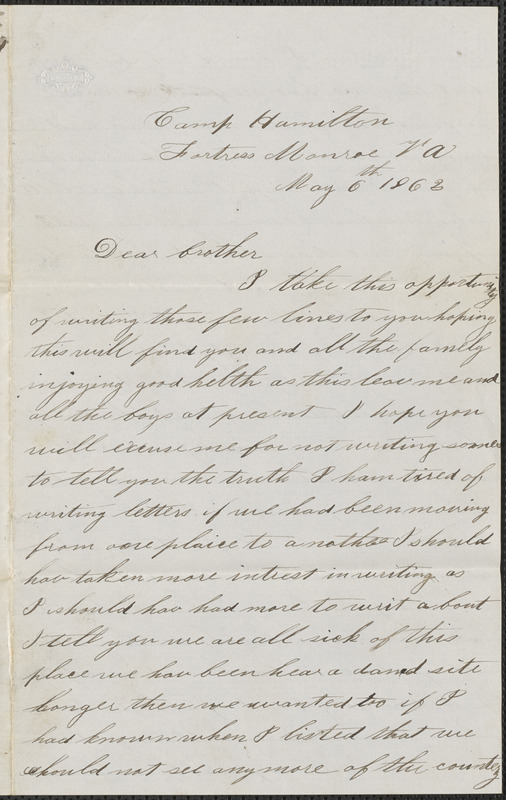 Camp Hamilton
Fortress Monroe Va
May 6th 1862
Dear brother
I take this opportunity
of writing those few lines to you hoping
this will find you and all the family
injoying good helth as this leav me and
all the boys at present I hope you
will excuse me for not writing sooner
to tell you the truth I ham tired of
writing letters if we had been moving
from one plaice to another I should
hav taken more intrest in writing as
I should hav had more to writ about
I tell you we are all sick of this
place we hav been hear a damd site
longer then we wanted too if I
had known when I listed that we
should not see any more of the country